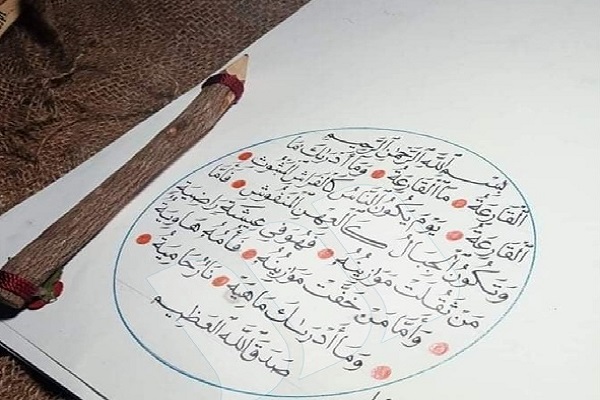 بِسْمِ اللَّهِ الرَّحْمَنِ الرَّحِيمِ
ٱلْقَارِعَةُ مَا ٱلْقَارِعَةُ وَمَا أَدْرَىٰكَ مَا
ٱلْقَارِعَةُ يَوْمَ يَكُونُ النَّاسُ كَالْفَرَاشِ الْمَبْثُوثِ
وَتَكُونُ الْجِبَالُ كَالْعِهْنِ الْمَنْفُوشِ فَأَمَّا
مَنْ ثَقُلَتْ مَوَازِينُهُ فَهُوَ فِي عِيشَةٍ رَاضِيَةٍ
وَأَمَّا مَنْ خَفَّتْ مَوَازِينُهُ فَأُمُّهُ هَاوِيَةٌ
وَمَا أَدْرَىٰكَ مَاهِيَهْ نَارٌ حَامِيَةٌ
صَدَقَ اللَّهُ الْعَظِيم